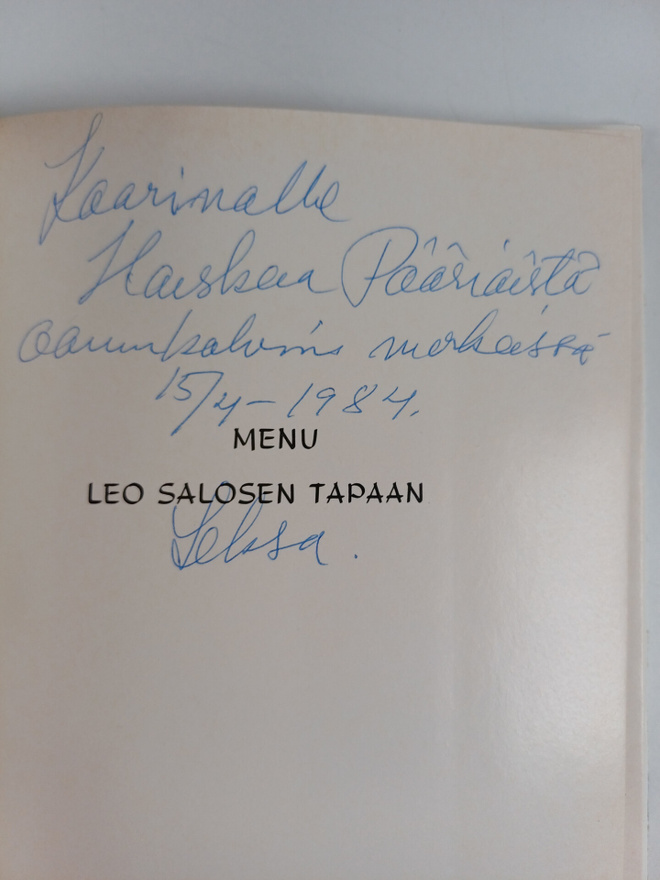 Kaarinalle
Hauskaa Pääsiäistä
aamukahvin merkeissä
15/4-1984.
MENU
LEO SALOSEN TAPAAN
Leksa.